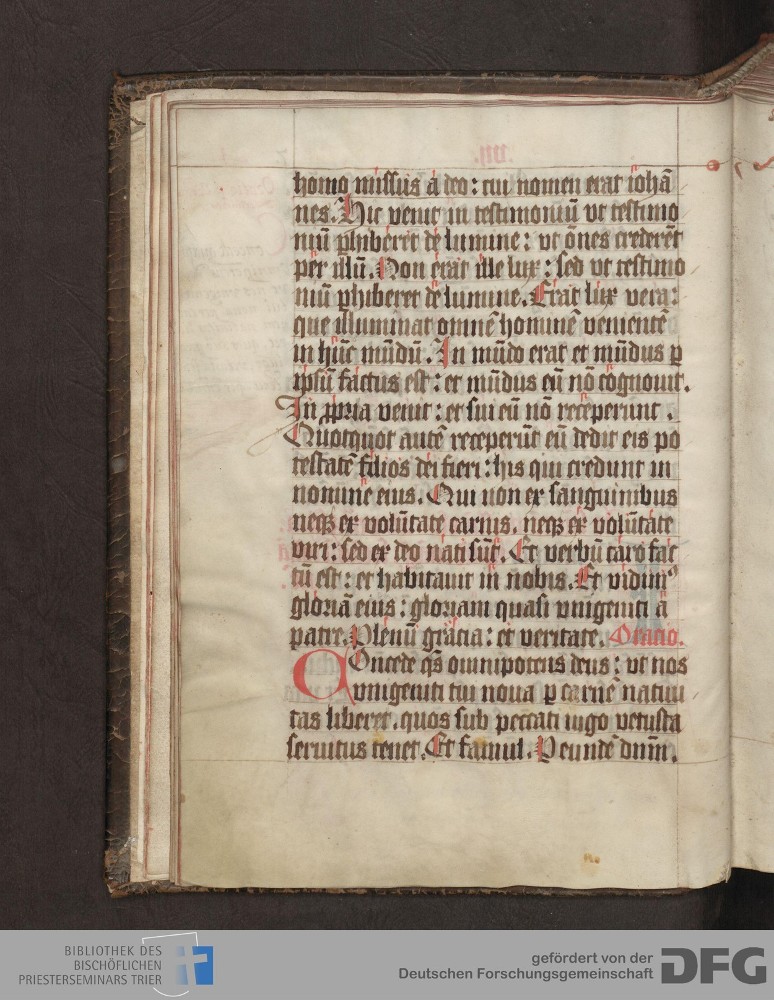 homo missus a deo : cui nomen erat iohā
nes. Hic venit in testimoniū vt testimo
niū phiberet de lumine : vt ōnes crederēt
per illū. Non erat ille lux : sed vt testimo
niū phiberet de lumine. Erat lux vera :
que illuminat omnē hominē venientē
in hūc mūdū. In mūdo erat et mūdus p
ipsū factus est : et mūdus eū nō cognouit.
In ppria venit : et sui eū nō receperunt.
Quotquot autē receperūt eū dedit eis po
testatē filios dei fieri : his qui credunt in
nomine eius. Qui non ex sanguinibus
neqꝫ ex volūtate carnis. neqꝫ ex volūtate
viri : sed ex deo nati sūt. Et verbū caro fac
tū est : et habitauit in nobis. Et vidimꝰ
gloriā eius : gloriam quasi vnigeniti a
patre. Plenū gracia : et veritate. Oracio.
Concede qs omnipotens deus : vt nos
vnigeniti tui noua p carnē natiui
tas liberet. quos sub peccati iugo vetusta
seruitus tenet. Et famul. P eundē dnm̄.
BIBLIOTHEK DES
BISCHÖFLICHEN
PRIESTERSEMINARS TRIER
gefördert von der
Deutschen Forschungsgemeinschaft
DFG